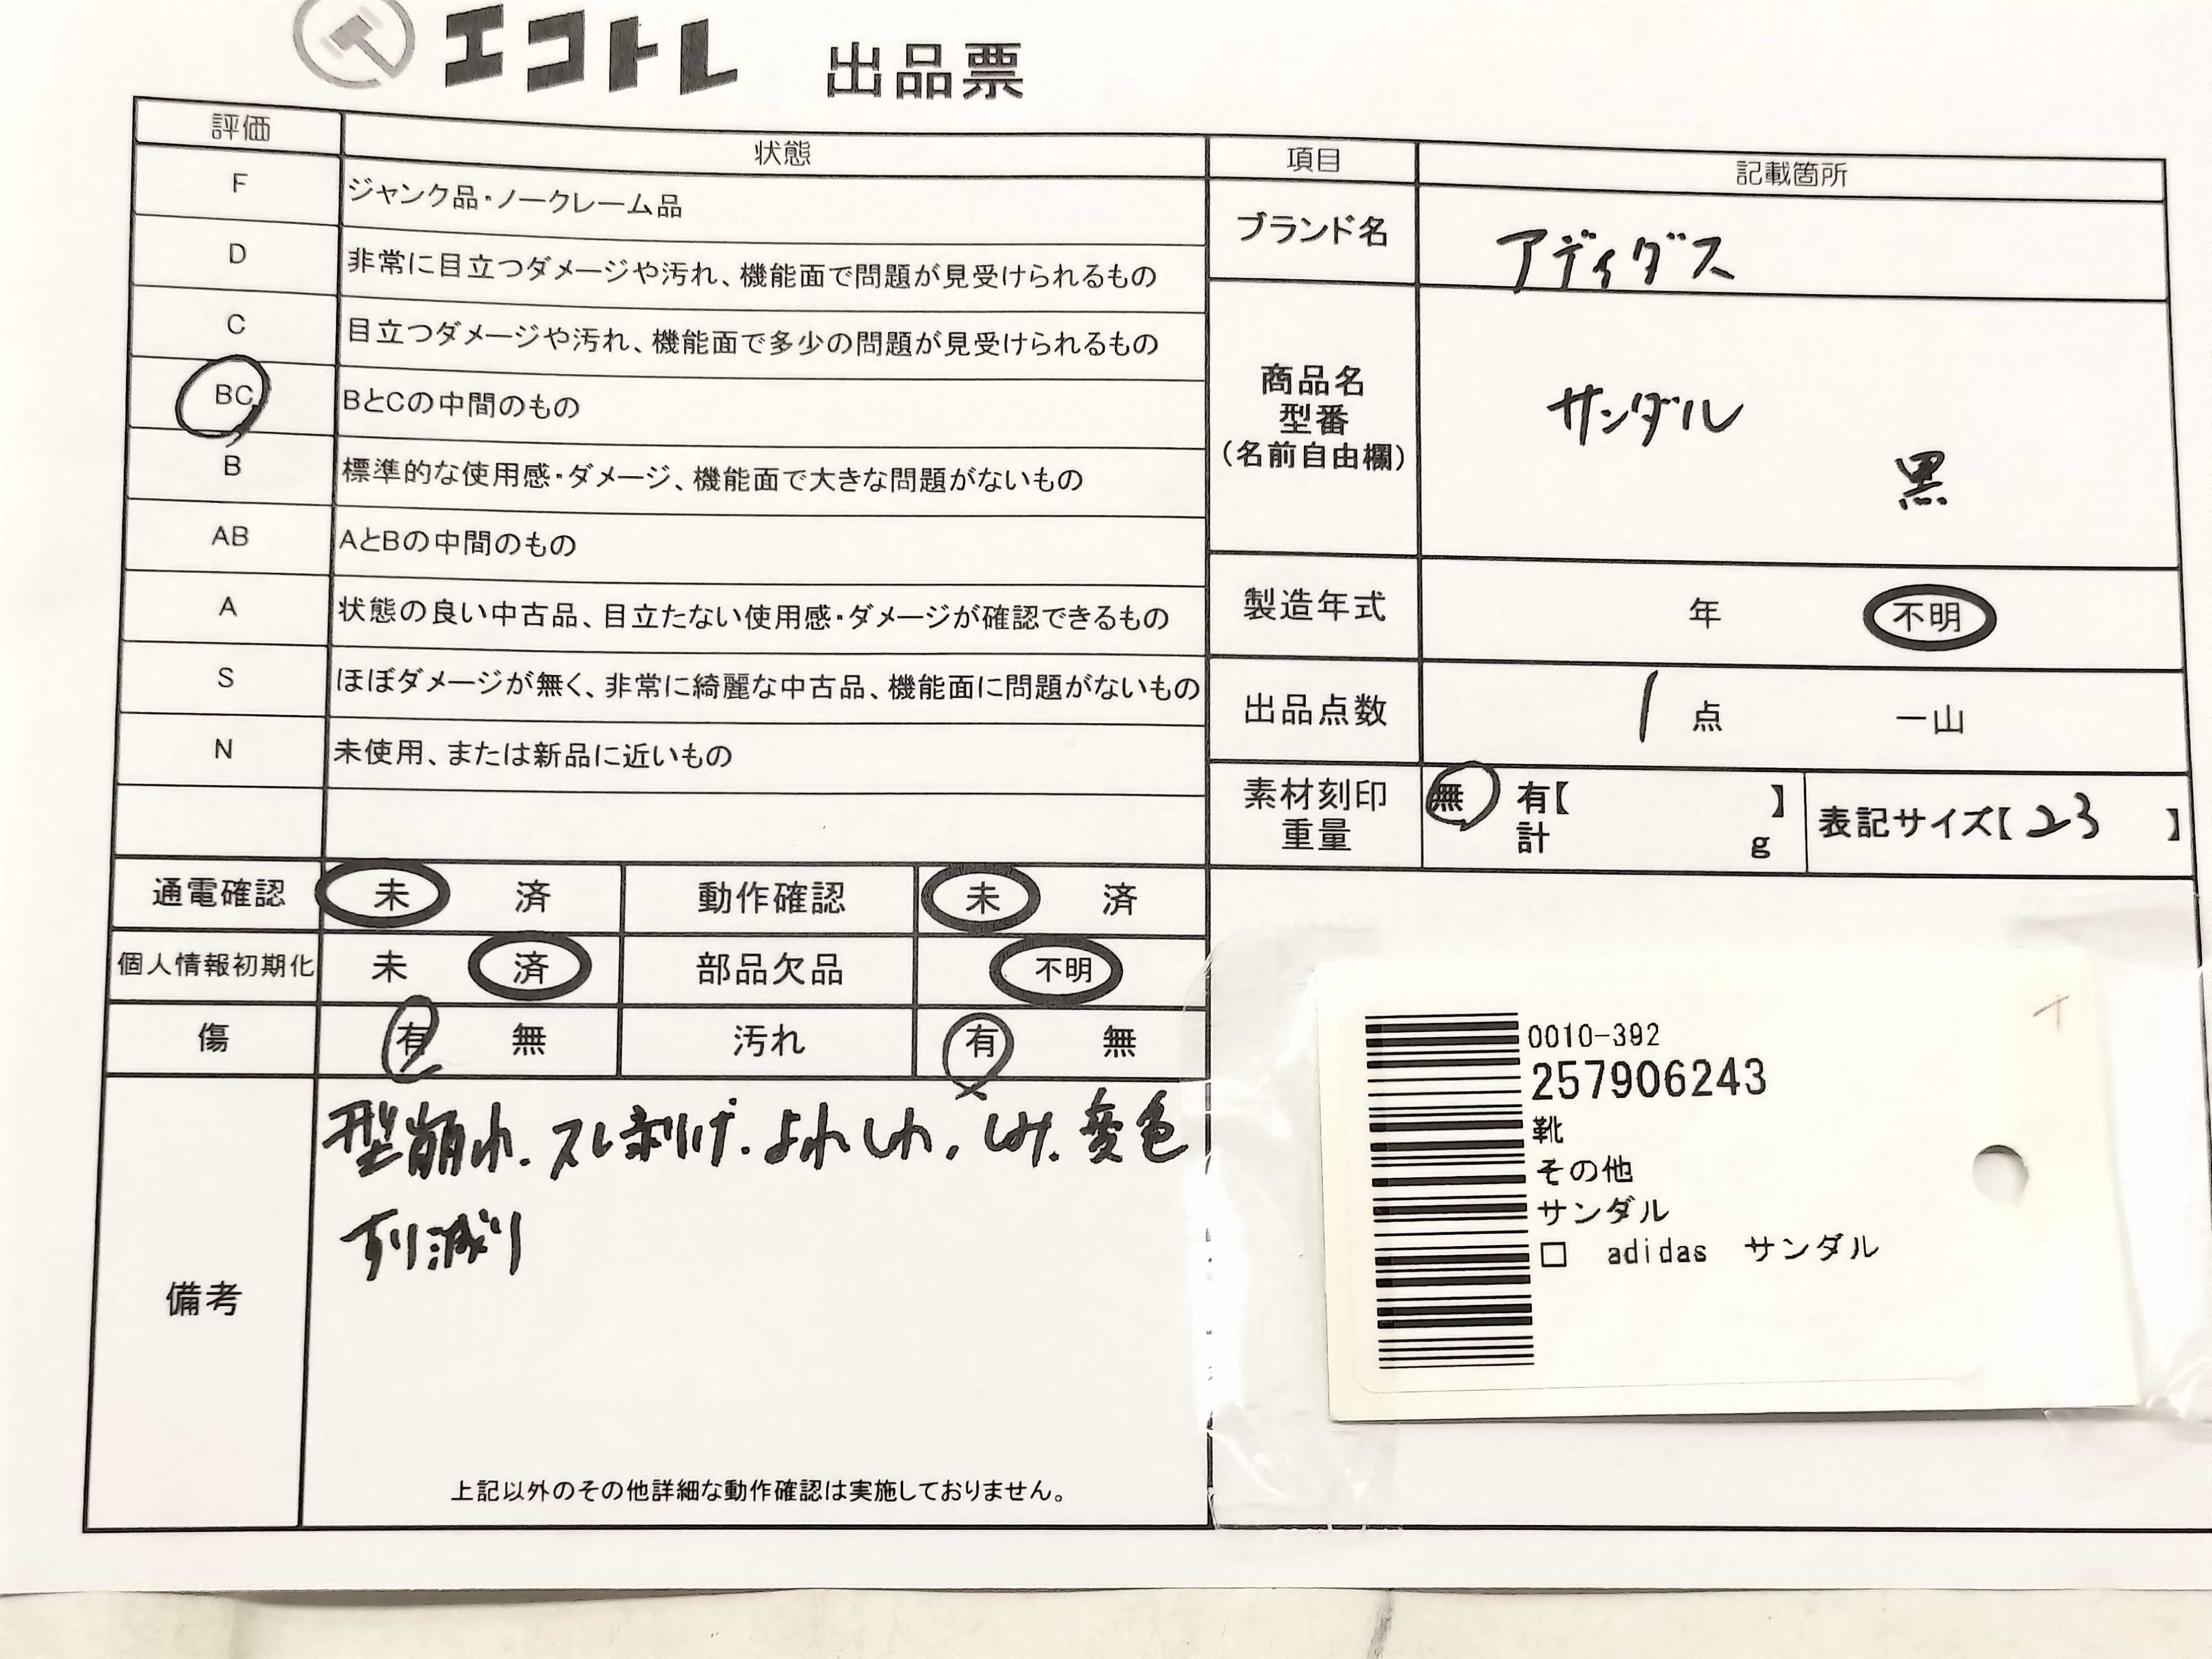 エコトレ 出品票
評価 状態
F ジャンク品・ノークレーム品
D 非常に目立つダメージや汚れ、機能面で問題が見受けられるもの
C 目立つダメージや汚れ、機能面で多少の問題が見受けられるもの
BC BとCの中間のもの
B 標準的な使用感・ダメージ、機能面で大きな問題がないもの
AB AとBの中間のもの
A 状態の良い中古品、目立たない使用感・ダメージが確認できるもの
S ほぼダメージが無く、非常に綺麗な中古品、機能面に問題がないもの
N 未使用、または新品に近いもの
通電確認 未 済 動作確認 未 済
個人情報初期化 未 済 部品欠品 不明
傷 有 無 汚れ 有 無
備考
型崩れ.スレ剥げ.よれしわ.しみ.変色
すり減り
上記以外のその他詳細な動作確認は実施しておりません。
項目 記載箇所
ブランド名 アディダス
商品名
型番
(名前自由欄)
サンダル
黒
製造年式 年 不明
出品点数 1 点 一山
素材刻印 無 有【 】
重量 計 g
表記サイズ【 23 】
0010-392
257906243
靴
その他
サンダル
□ adidas サンダル